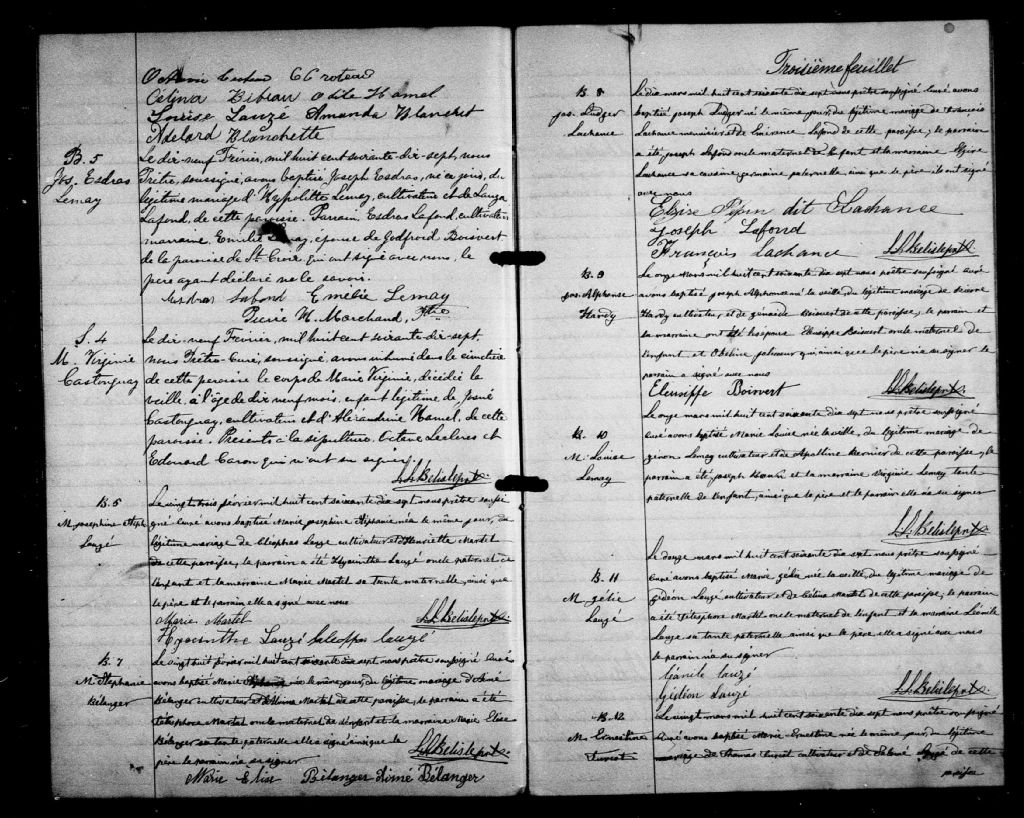 Célina Bibeau Odile Hamel
Louise Lauzé Amanda Blanchet
Adélard Blanchette
B. 5
Jos. Esdras
Lemay
Le dix-neuf Février, mil huit cent soixante-dix-sept, nous
Prêtre, soussigné, avons baptisé Joseph Esdras, né ce jour, du
légitime mariage d'Hypolitte Lemay, cultivateur et de Lauza
Lafond, de cette paroisse. Parrain, Esdras Lafond, cultivateur
marraine, Emélie Lemay, épouse de Godfroid Boisvert
de la paroisse de Ste Croix qui ont signé avec nous, le
père ayant déclaré ne le savoir.
Esdras Lafond Emélie Lemay
Pierre N. Marchand, Ptre
S. 4
M. Virginie
Castonguay
Le dix-neuf Février, mil huit cent soixante-dix-sept,
nous Prêtre-Curé, soussigné avons inhumé dans le cimetière
de cette paroisse le corps de Marie Virginie, décédée la
veille, à l'âge de dix neuf mois, enfant légitime de Josué
Castonguay, cultivateur et d'Alexandrine Hamel, de cette
paroisse. Présents à la sépulture, Octave Leclerc et
Edouard Caron qui n'ont su signer.
L.S. Belisle ptr
B. 5
M. Josephine Steph
Lauzé
Le vingt trois février mil huit cent soixante dix sept nous prêtre soussi
gné curé avons baptisé Marie josephine Stéphanie née le même jour, du
légitime mariage de Cléophas Lauzé cultivateur et d'Henriette Martel
de cette paroisse, le parrain a été Hyacinthe Lauzé oncle paternel de
l'enfant et la marraine Marie Martel sa tante maternelle, ainsi que
le père et le parrain elle a signé avec nous
Marie Martel
L.S. Belisle ptr
Hyacinthe Lauzé Cléophas Lauzé
B. 7
M. Stephanie
Bélanger
Le vingt huit février mil huit cent soixante dix sept nous prêtre soussigné Curé
avons baptisé Marie Stéphanie née le même jour, du légitime mariage d'Aimé
Bélanger cultivateur et de Martel de cette paroisse, le parrain a été
Télésphore Martel oncle maternel de l'enfant et la marraine Marie Elise
Bélanger sa tante paternelle elle a signé ainsi que le
père le parrain n'a su signer
L.S. Belisle ptr
Marie Elise Bélanger Aimé Bélanger
Troisième feuillet
B. 8
Jos. Ludger
Lachance
Le dix mars mil huit cent soixante dix sept nous prêtre soussigné curé avons
baptisé joseph Ludger né le même jour, du légitime mariage de François
Lachance menuisier et de Emérence Lafond de cette paroisse, le parrain
a été joseph Lafond oncle maternel de l'enfant et la marraine Elzire
Lachance sa cousine germaine paternelle, ainsi que le père ils ont signé
avec nous
Elzire Pepin dit Lachance
Joseph Lafond
François Lachance
L.S. Belisle ptr
B. 9
Jos. Alphonse
Hardy
Le onze Mars mil huit cent soixante dix sept nous prêtre soussigné curé
avons baptisé joseph Alphonse né la veille du légitime mariage de
Hardy cultivateur, et de Boisvert de cette paroisse, le parrain et
la marraine ont été Boisvert oncle maternel de
l'enfant et qui ainsi que le père n'a su signer le
parrain a signé avec nous
Eleusiffe Boisvert
L.S. Belisle ptr
B. 10
M. Louise
Lemay
Le onze mars mil huit cent soixante dix sept nous prêtre soussigné
curé avons baptisé Marie Louise née la veille, du légitime mariage de
Zénon Lemay cultivateur et de Apolline Bernier de cette paroisse, le
parrain a été joseph et la marraine Virginie Lemay tante
paternelle de l'enfant, ainsi que le père et le parrain elle n'a su signer
L.S. Belisle ptr
B. 11
M. Zélie
Lauzé
Le douze mars mil huit cent soixante dix sept nous prêtre soussigné
curé avons baptisé Marie Zélie née la veille, du légitime mariage de
Gédéon Lauzé cultivateur et de Célina Martel de cette paroisse, le parrain
a été Télésphore Martel oncle maternel de l'enfant et la marraine
Lauzé sa tante paternelle ainsi que le père elle a signé avec nous
le parrain n'a su signer
Lauzé
Gédéon Lauzé
L.S. Belisle ptr
B. 12
M. Ernestine
Turcot
Le vingt mars mil huit cent soixante dix sept nous prêtre soussigné
Curé avons baptisé Marie Ernestine née le même jour du légitime
mariage de Thomas Turcot cultivateur et de de cette
paroisse